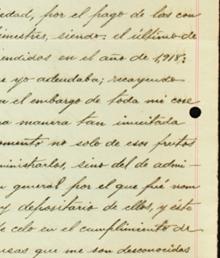 iedad, por el pago de los con
imestres, siendo, el último de
endidos en el año de 1918;
e yo adeudaba; recayendo
n el embargo de toda mi cose
na manera tan inusitada
omento no solo de esos frutos
ministrarlos, sino del de admi-
n general por el que fué nom
y depositario de ellos, y ésto
e celo en el cumplimiento de
usas que me son desconocidas